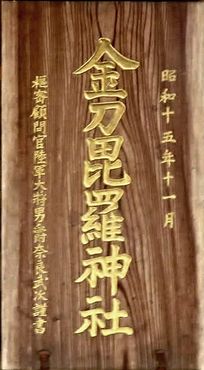 昭和十五年十一月
金刀毘羅神社
枢密顧問官陸軍大将男爵奈良武次謹書